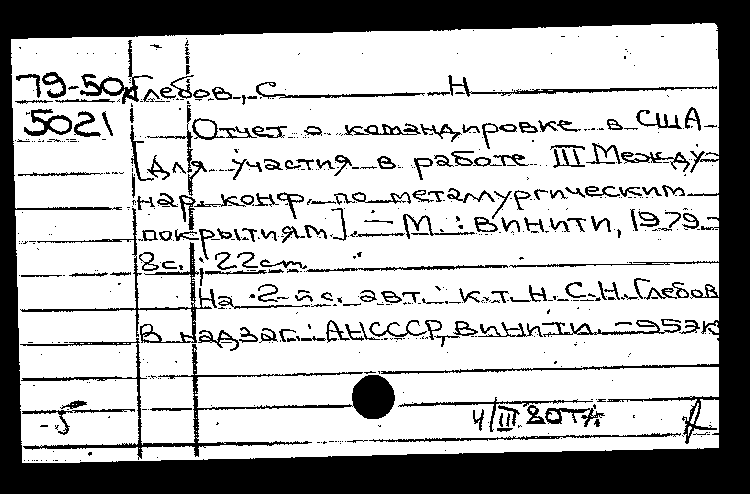 79-50к Глебов, С Н
5021 Отчет о командировке в США
[Для участия в работе III Между-
нар. конф. по металлургическим
покрытиям]. — М. : ВИНИТИ, 1979.-
8с. ; 22см.
На 2-й с. авт.: к.т.н. С.Н. Глебов
В надзаг.: АН СССР, ВИНИТИ. - 95эк
-5 4/III 80